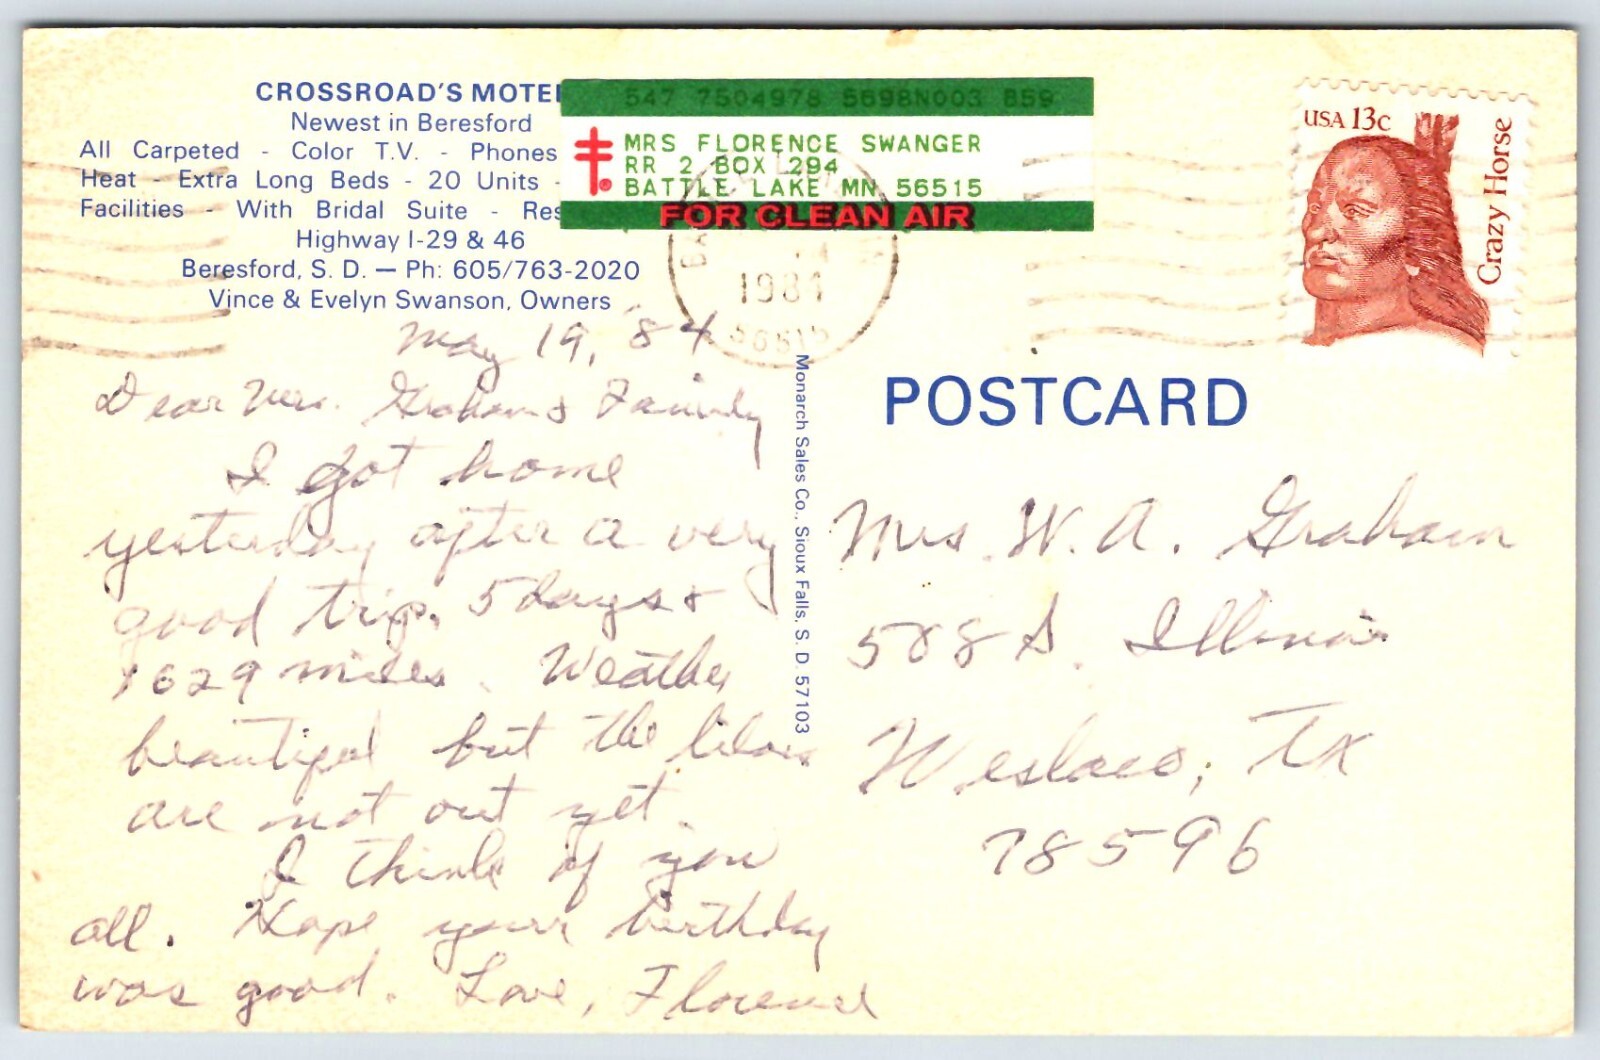 CROSSROAD'S MOTEL
Newest in Beresford
All Carpeted - Color T.V. - Phones
Heat - Extra Long Beds - 20 Units -
Facilities - With Bridal Suite - Res
Highway I-29 & 46
Beresford, S. D. — Ph: 605/763-2020
Vince & Evelyn Swanson, Owners
547 7504978 5698N003 859
MRS FLORENCE SWANGER
RR 2 BOX 294
BATTLE LAKE MN 56515
FOR CLEAN AIR
1984
56515
USA 13c
Crazy Horse
POSTCARD
Monarch Sales Co., Sioux Falls, S. D. 57103
May 19, '84
Dear Mrs. Graham & Family
I got home
yesterday after a very
good trip. 5 days &
1629 miles. Weather
beautiful but the lilacs
are not out yet.
I think of you
all. Hope your birthday
was good. Love, Florence
Mrs. W. A. Graham
508 S. Illinois
Weslaco, Tx
78596